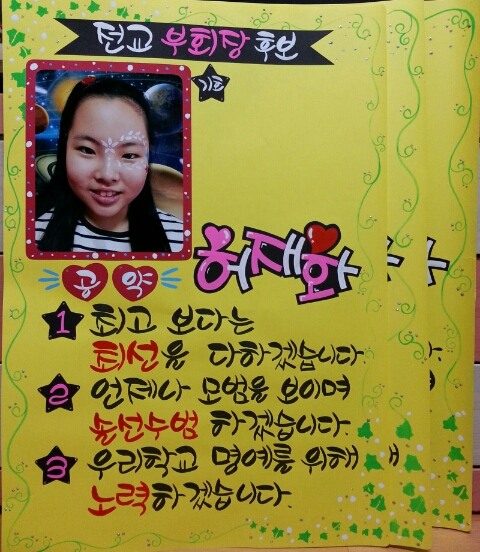 전교 부회장 후보
기호
허재화
공약
1 최고 보다는
최선을 다하겠습니다.
2 언제나 모범을 보이며
솔선수범 하겠습니다.
3 우리학교 명예를 위해
노력하겠습니다.